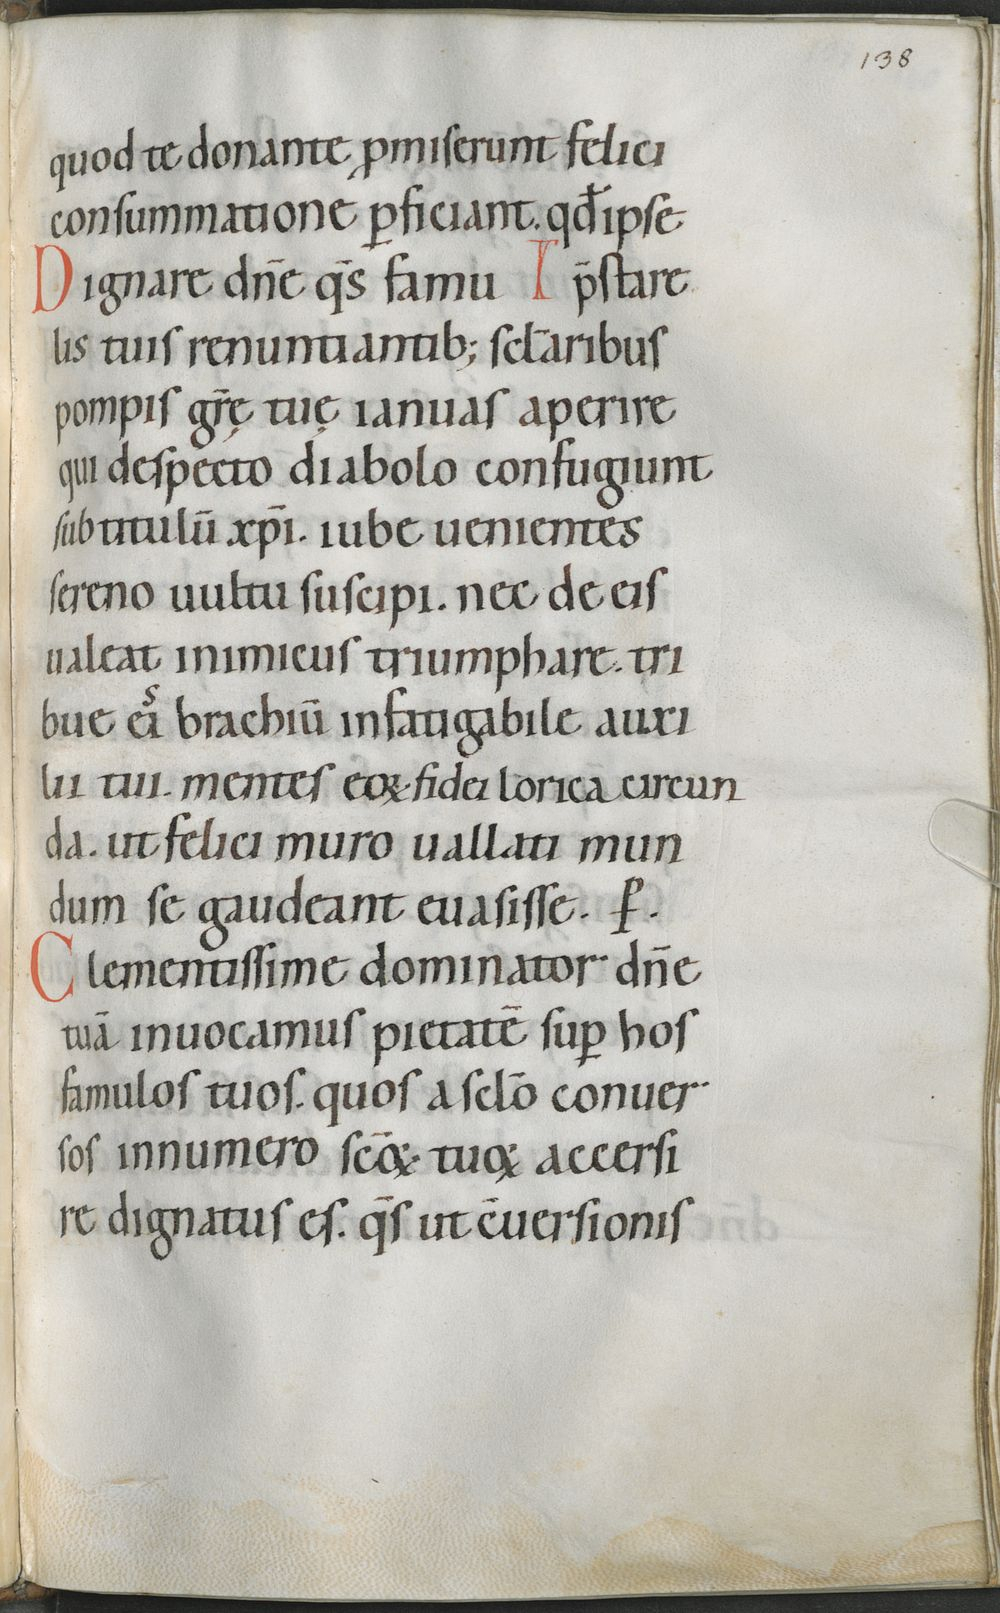 138
quod te donante ꝓmiserunt felici
consummatione ꝑficiant. qđ ipse
Dignare dn̄e qs̄ famu I p̄stare
lis tuis renuntiantib; scl̄aribus
pompis gr̄ę tuę ianuas aperire
qui despecto diabolo confugiunt
sub titulū xp̄i. iube uenientes
sereno uultu suscipi. nec de eis
ualeat inimicus triumphare. tri
bue eis brachiū infatigabile auxi
lii tui. mentes eoꝝ fidei loricā circun
da. ut felici muro uallati mun
dum se gaudeant euasisse. ꝑ.
Clementissime dominator dn̄e
tuā inuocamus pietatē suꝑ hos
famulos tuos. quos a scl̄o conuer
sos in numero sc̄oꝝ tuoꝝ accersi
re dignatus es. qs̄ ut c̄uersionis